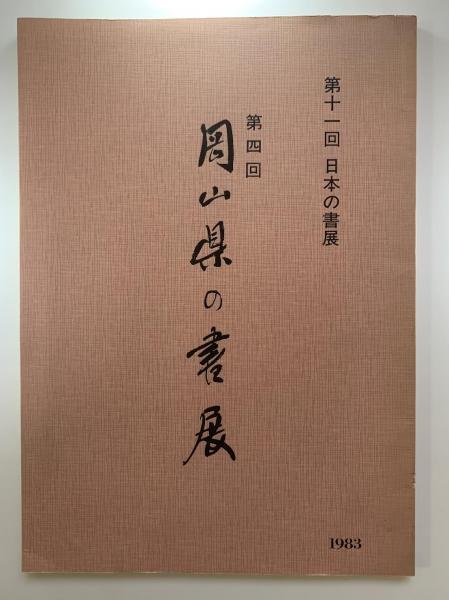 第十一回 日本の書展
第四回
岡山県の書展
1983